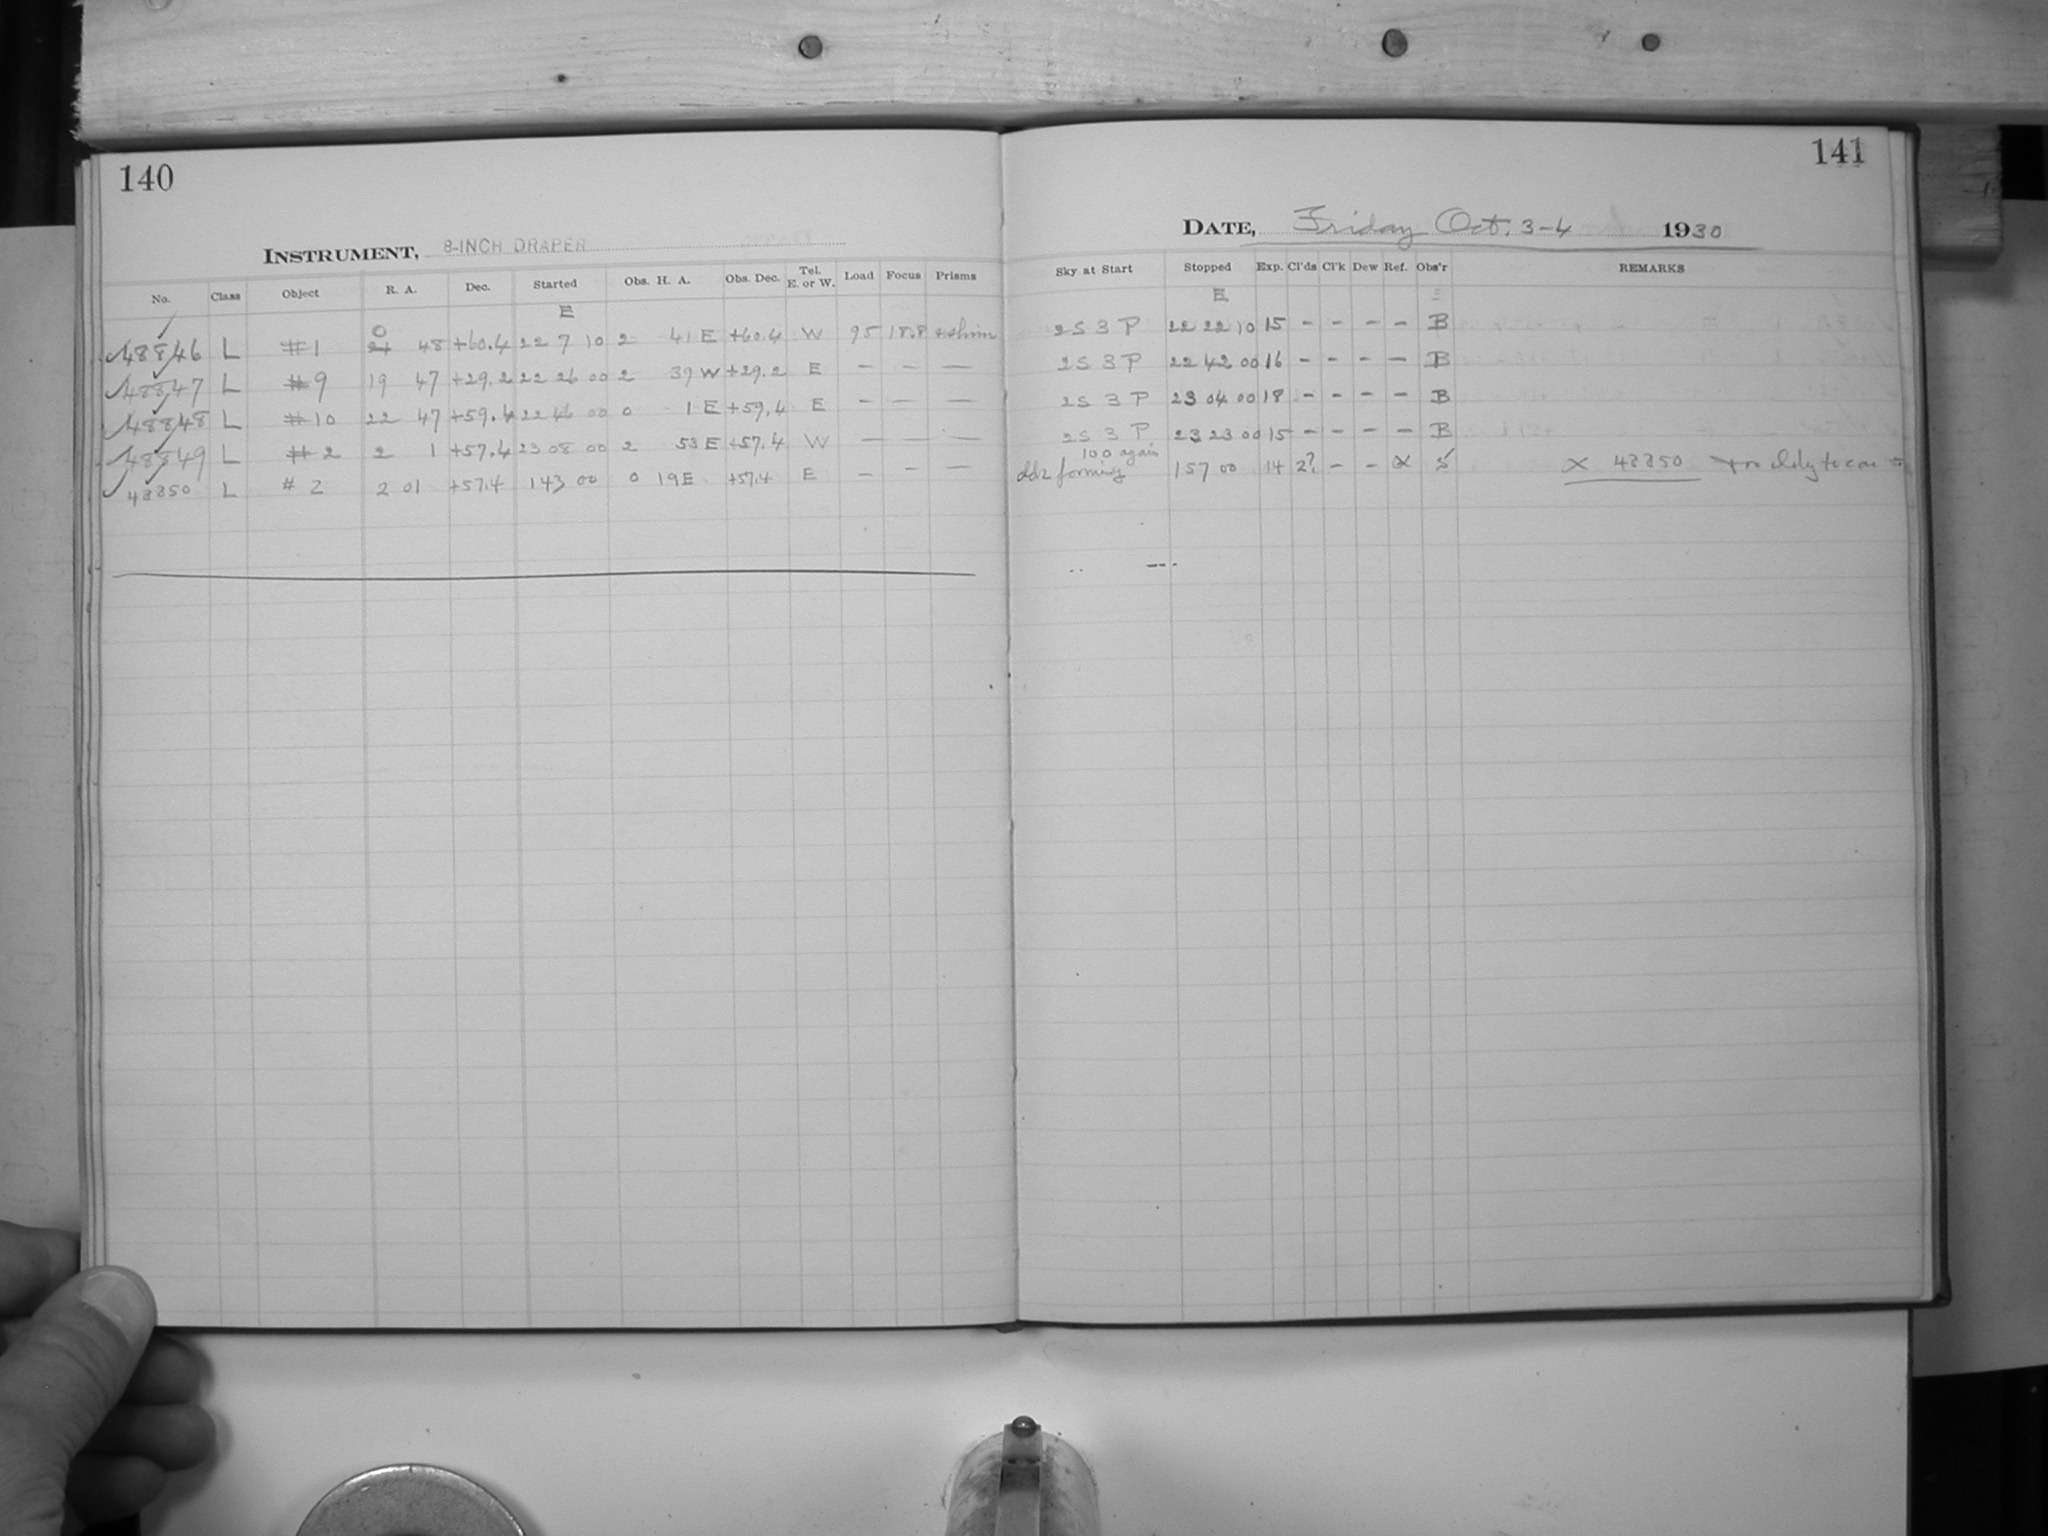 140
INSTRUMENT, 8-INCH DRAPER
No. Class Object R. A. Dec. Started Obs. H. A. Obs. Dec. Tel. E. or W. Load Focus Prisms
E
0
48846 L #1 21 48 +60.4 22 7 10 2 41 E +60.4 W 95 18.8
48847 L #9 19 47 +29.2 22 26 00 2 39 W +29.2 E — — —
48848 L #10 22 47 +59.4 22 46 00 0 1 E +59.4 E — — —
48849 L #2 2 1 +57.4 23 08 00 2 53 E +57.4 W — — —
48850 L #2 2 01 +57.4 1 43 00 0 19 E +57.4 E — — —
141
DATE, Friday Oct. 3-4 1930
Sky at Start Stopped Exp. Cl'ds Cl'k Dew Ref. Obs'r REMARKS
E
2 S 3 P 22 22 10 15 – – – – B
2 S 3 P 22 42 00 16 – – – – B
2 S 3 P 23 04 00 18 – – – – B
2 S 3 P 23 23 00 15 – – – – B
100 again
forming 1 57 00 14 2? – – x S x 48850